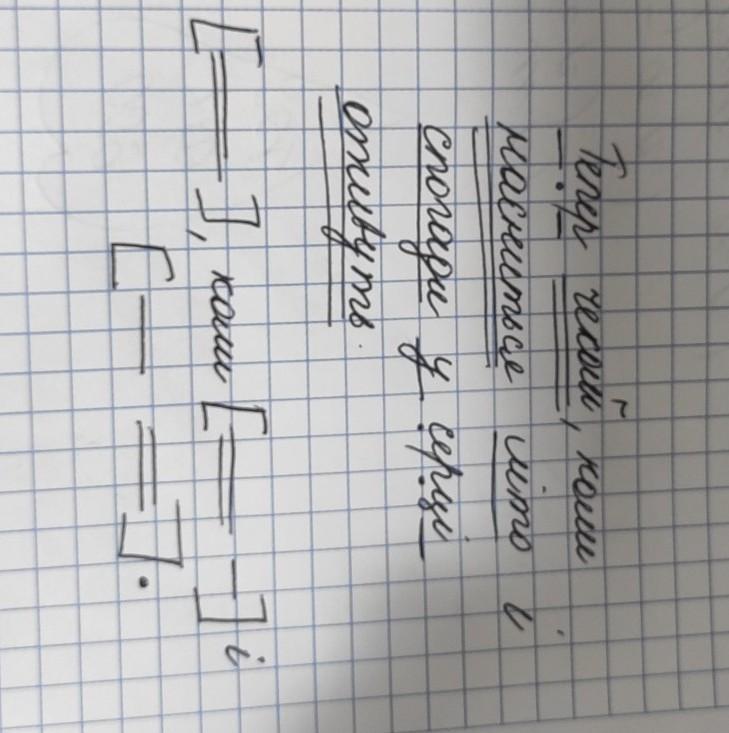 Тепер чекай, коли
насниться літо і
спогади у серці
оживуть.
[ ═ ], коли [ ═ – ] і
[ – ═ ].